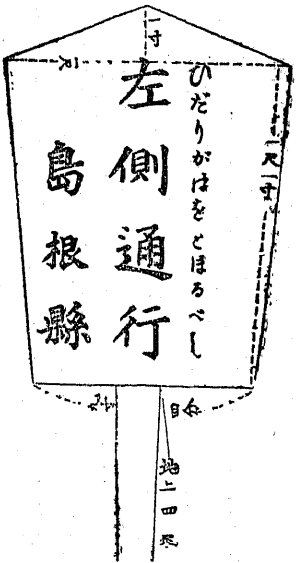 一寸
一尺
ひだりがはをとほるべし
左側通行
島根縣
一尺一寸
地上四尺